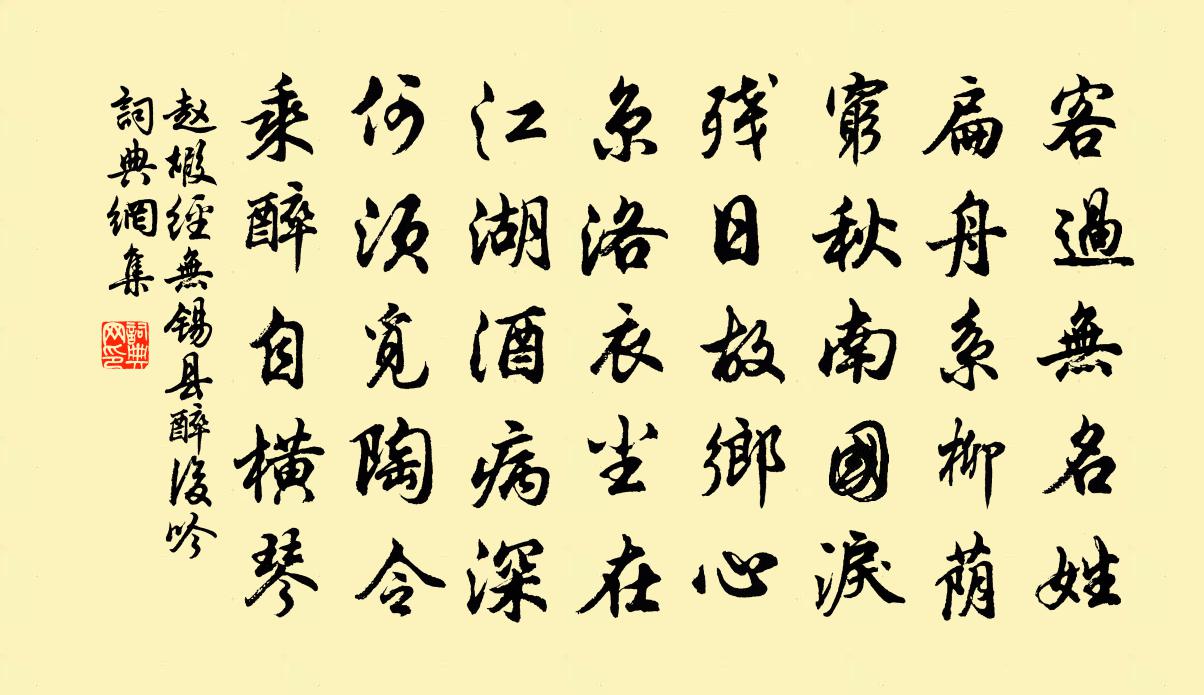 客過無名姓
扁舟系柳荫
窮秋南國淚
残日故鄉心
京洛衣尘在
江湖酒病深
何须覓陶令
乘醉自橫琴
赵嘏經無锡县醉後吟
詞典網集
詞典
网印